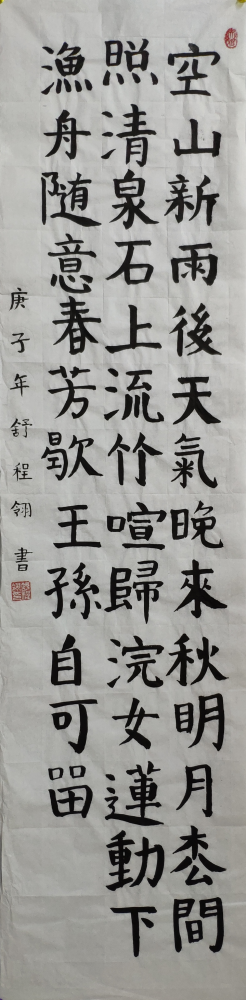 空山新雨後天氣晚來秋明月枩間
照清泉石上流竹喧歸浣女蓮動下
漁舟随意春芳歇王孫自可畱
庚子年舒程翎書